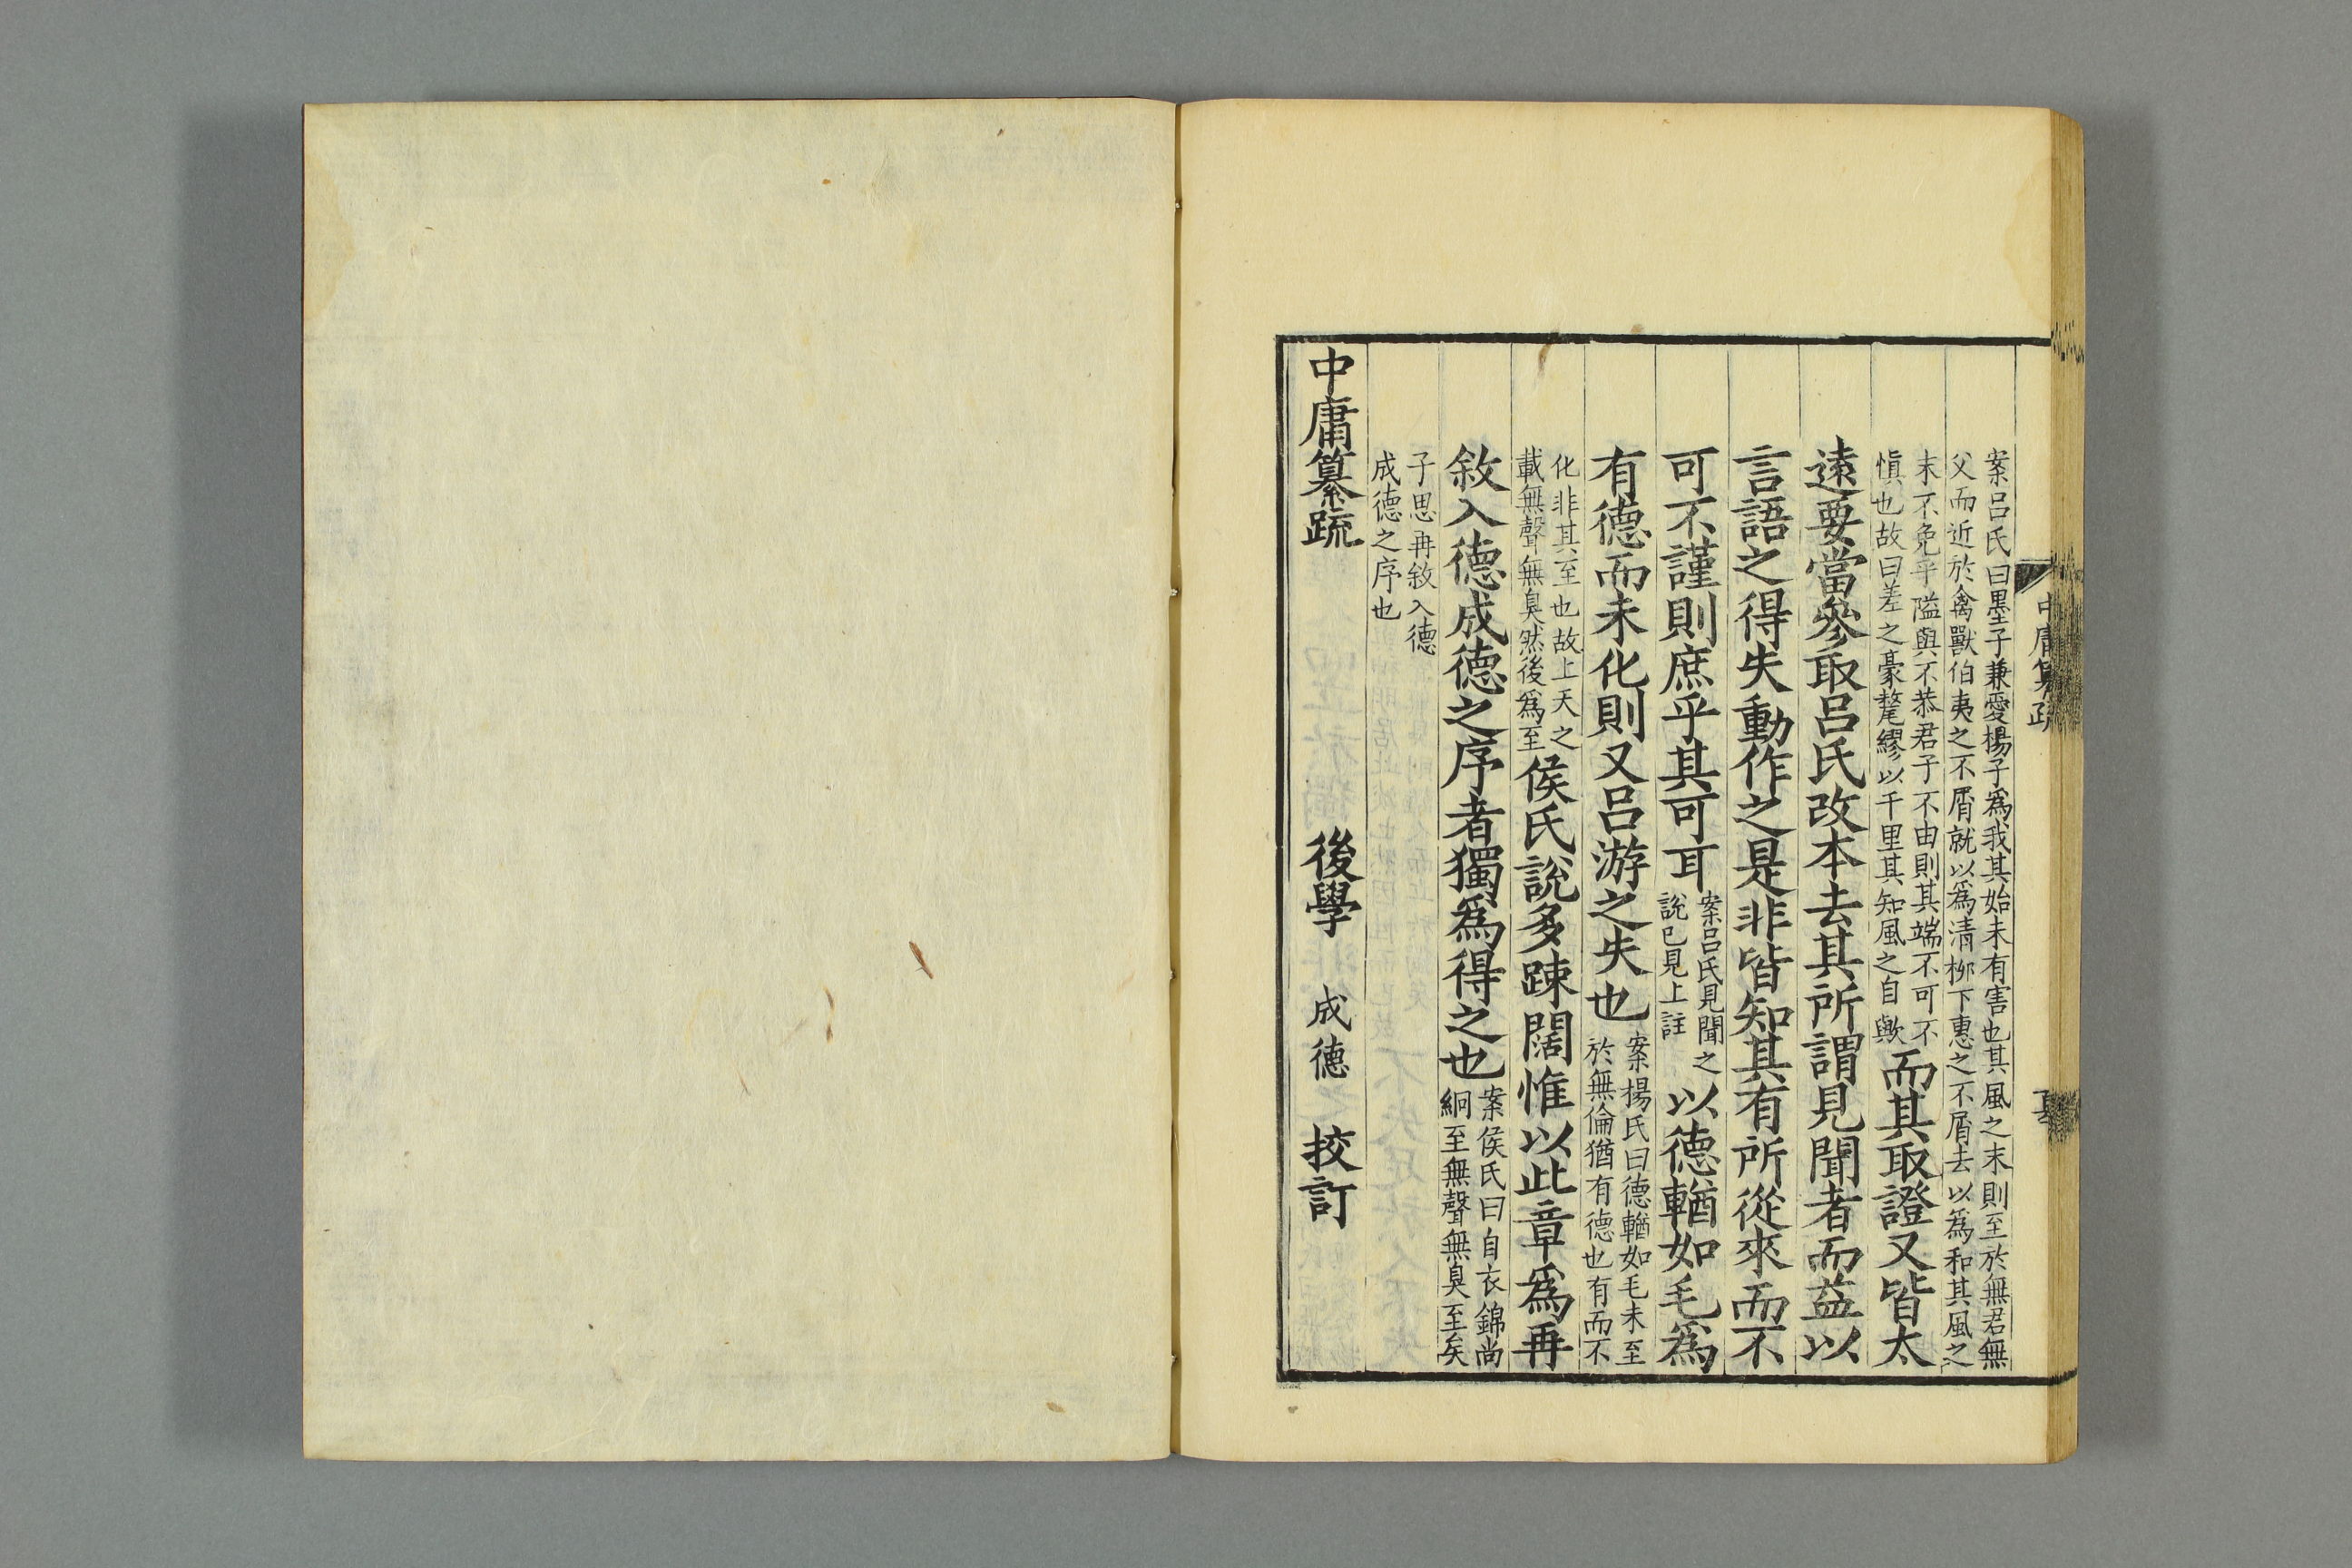 案呂氏曰墨子兼愛楊子爲我其始未有害也其風之末則至於無君無
父而近於禽獸伯夷之不屑就以爲清柳下惠之不屑去以爲和其風之
末不免乎隘與不恭君子不由則其端不可不
愼也故曰差之豪氂繆以千里其知風之自歟
而其取證又皆太
遠要當參取呂氏改本去其所謂見聞者而益以
言語之得失動作之是非皆知其有所從來而不
可不謹則庶乎其可耳
案呂氏見聞之
說已見上註
以德輶如毛爲
有德而未化則又呂游之失也
案楊氏曰德輶如毛未至
於無倫猶有德也有而不
化非其至也故上天之
載無聲無臭然後爲至
侯氏說多踈闊惟以此章爲再
敘入德成德之序者獨爲得之也
案侯氏曰自衣錦尚
絅至無聲無臭至矣
子思再敘入德
成德之序也
中庸纂疏
後學 成德 挍訂
中庸纂疏